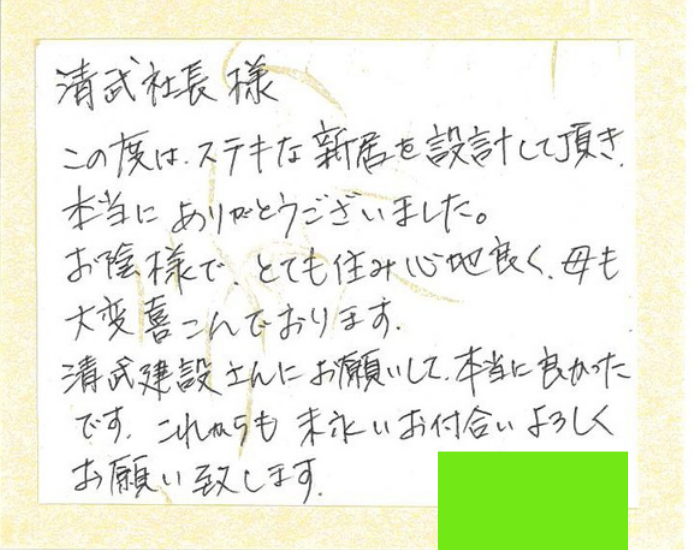 清武社長様
この度は、ステキな新居を設計して頂き、
本当にありがとうございました。
お陰様で、とても住み心地良く、母も
大変喜こんでおります。
清武建設さんにお願いして、本当に良かった
です。これからも末永いお付合いよろしく
お願い致します。